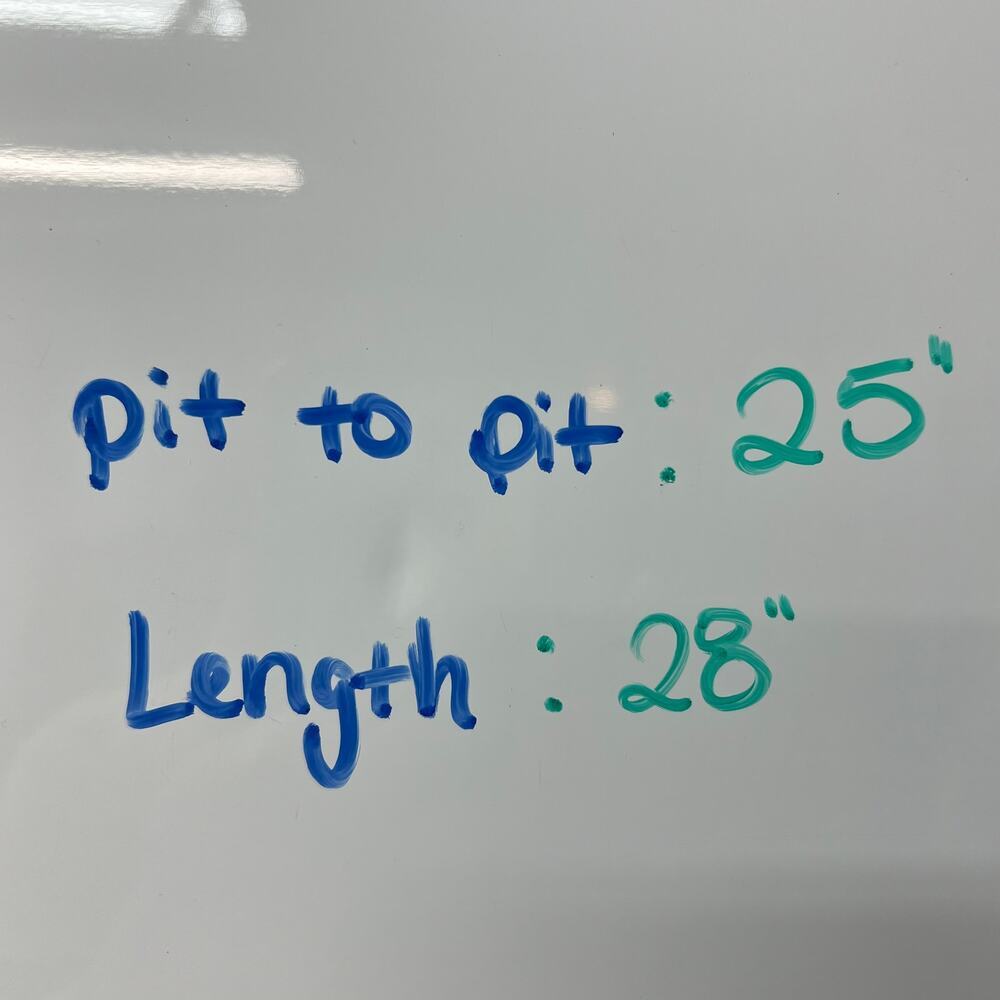 pit to pit : 25"
Length : 28"